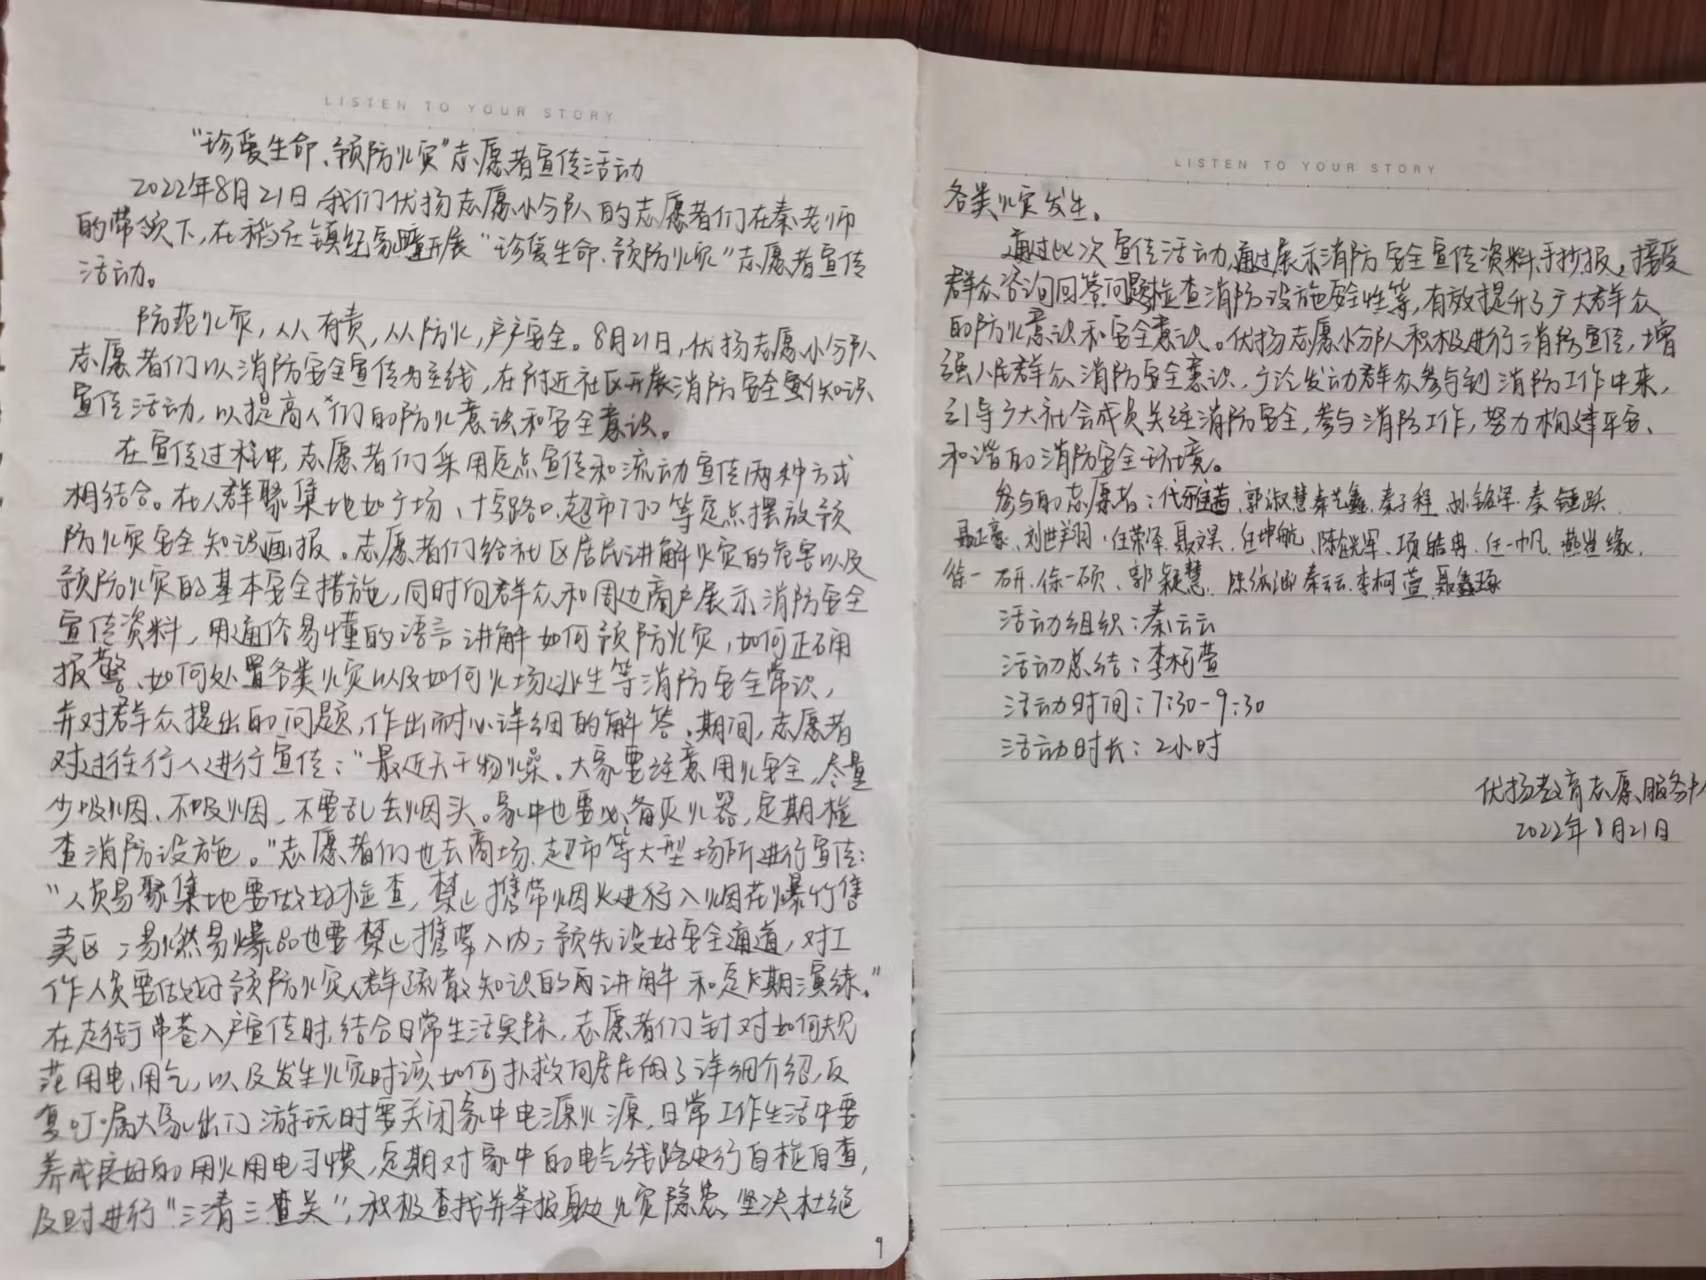 LISTEN TO YOUR STORY
“珍爱生命、预防火灾”志愿者宣传活动
2022年8月21日,我们优扬志愿小分队的志愿者们在秦老师
的带领下,在稍庄镇纪家疃开展“珍爱生命、预防火灾”志愿者宣传
活动。
防范火灾,人人有责,人人防火,户户安全。8月21日,优扬志愿小分队
志愿者们以消防安全宣传为主线,在附近社区开展消防安全知识
宣传活动,以提高人们的防火意识和安全意识。
在宣传过程中,志愿者们采用定点宣传和流动宣传两种方式
相结合。在人群聚集地如广场、十字路口、超市门口等定点摆放预
防火灾安全知识画报。志愿者们给社区居民讲解火灾的危害以及
预防火灾的基本安全措施,同时向群众和周边商户展示消防安全
宣传资料,用通俗易懂的语言讲解如何预防火灾,如何正确
报警、如何处置各类火灾以及如何火场逃生等消防安全常识,
并对群众提出的问题,作出耐心详细的解答。期间,志愿者
对过往行人进行宣传:“最近天干物燥、大家要注意用火安全,尽量
少吸烟、不吸烟,不要乱丢烟头。家中也要必备灭火器,定期检
查消防设施。”志愿者们也去商场、超市等大型场所进行宣传:
“人员易聚集地要做好检查,禁止携带烟火进行入烟花爆竹售
卖区;易燃易爆品也要禁止携带入内;预先设好安全通道,对工
作人员要做好预防火灾人群疏散知识的讲解和定期演练。”
在走街串巷入户宣传时,结合日常生活实际,志愿者们针对如何规
范用电、用气,以及发生火灾时该如何扑救向居民做了详细介绍,反
复叮嘱大家出门游玩时要关闭家中电源火源,日常工作生活中要
养成良好的用火用电习惯,定期对家中的电气线路进行自检自查,
及时进行“三清三查关”,积极查找并举报身边火灾隐患,坚决杜绝
9
LISTEN TO YOUR STORY
各类火灾发生。
通过此次宣传活动,通过展示消防安全宣传资料、手抄报,接受
群众咨询回答问题,检查消防设施安全性等,有效提升了广大群众
的防火意识和安全意识。优扬志愿小分队积极进行消防宣传,增
强人民群众消防安全意识,广泛发动群众参与到消防工作中来,
引导广大社会成员关注消防安全,参与消防工作,努力构建平安、
和谐的消防安全环境。
参与的志愿者:代雅茜、郭淑慧、秦艺鑫、秦子程、孙铭泽、秦钰跃、
聂正豪、刘世翔、任荣泽、聂文昊、任坤航、陈锐军、项皓冉、任一帆、燕世缘、
徐一研、徐一硕、郭凝慧、陈依涵、秦云云、李柯萱、聂鑫琢
活动组织:秦云云
活动总结:李柯萱
活动时间:7:30-9:30
活动时长:2小时
优扬教育志愿服务
2022年8月21日